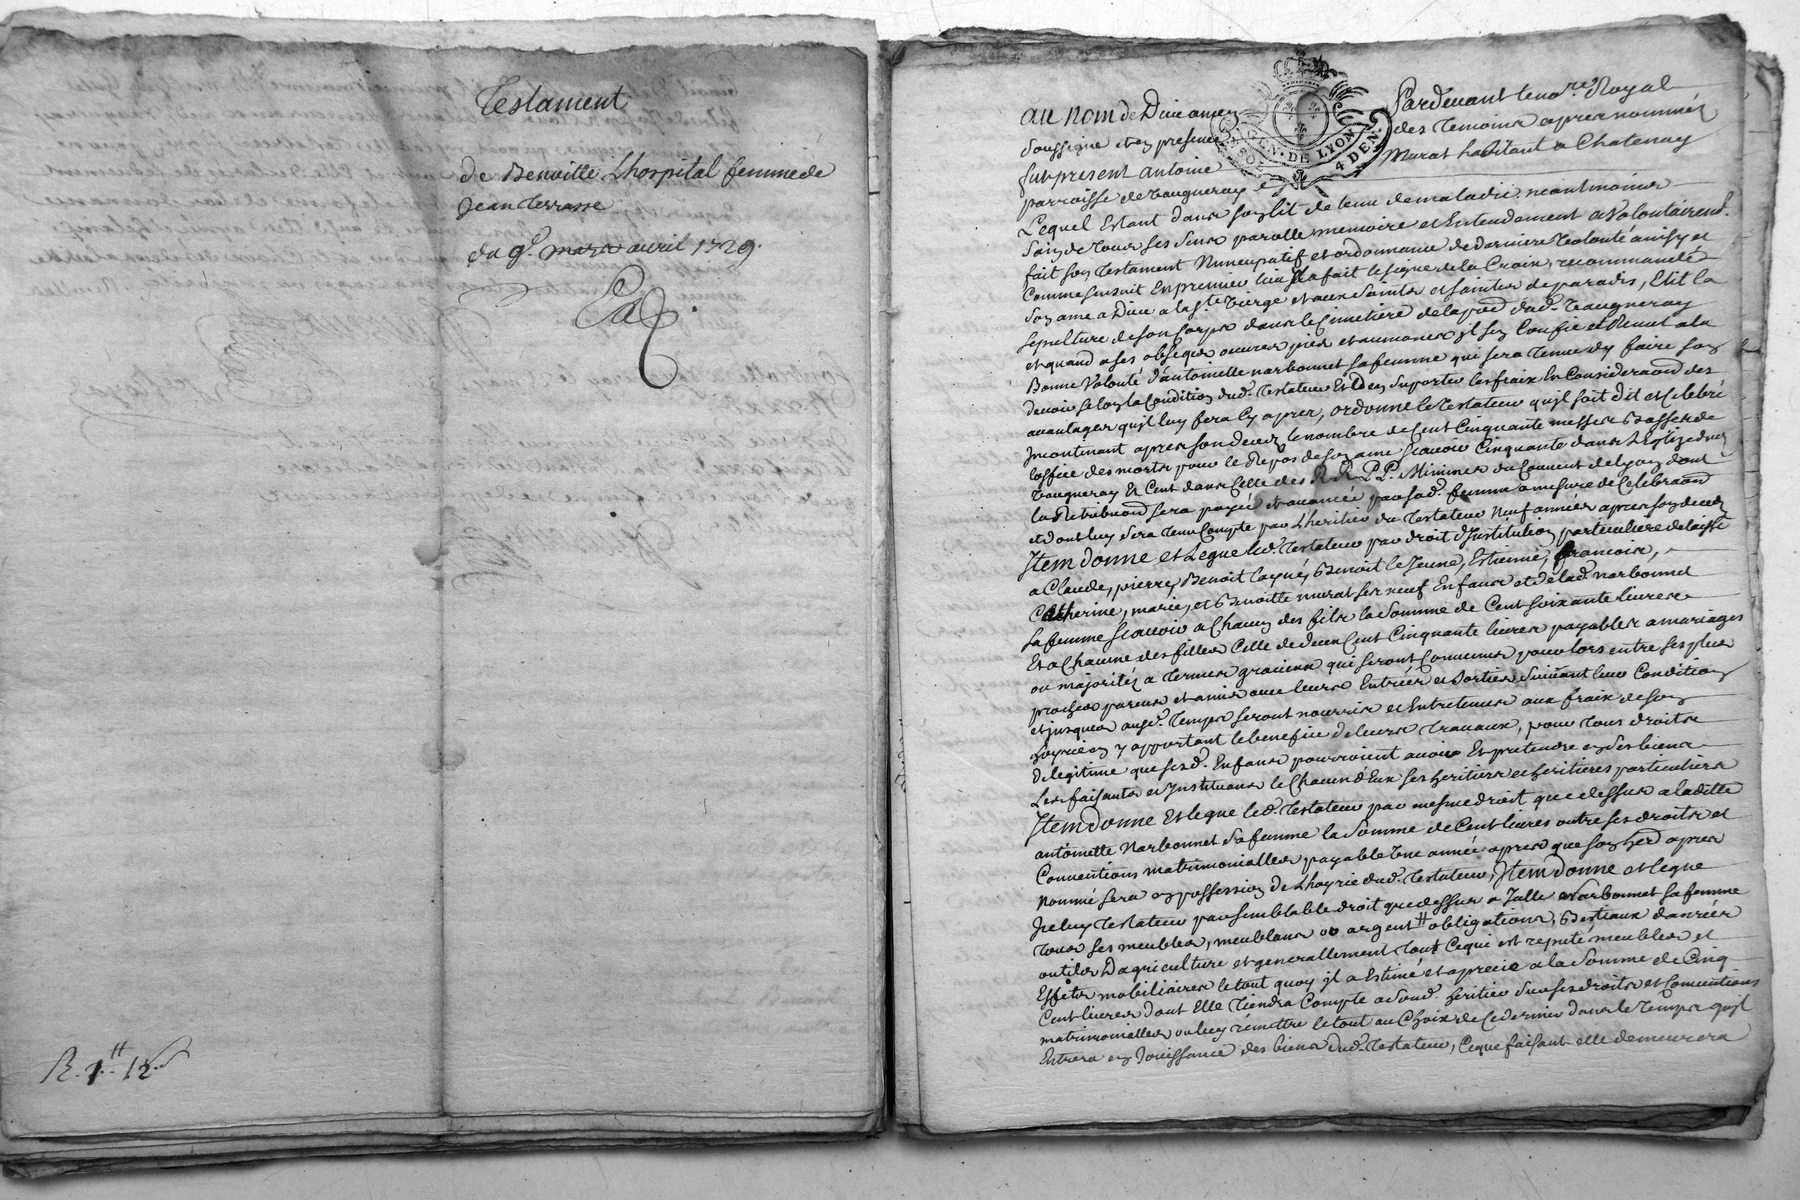 Testament
de Benoitte Lhospital femme de
Jean Terrasse
du 9e. mars avril 1729.
R. 1.# 12 s
GEN. DE LYON
4 DEN.
au nom de Dieu amen Pardevant le nore. Royal
soussigné et en presence des temoins apres nommés
fut present antoine Murat habitant a Chatenay
parroisse de Vaugneray
Lequel Estant dans son lit detenu de maladie neantmoins
sain de tous ses sens parolle memoire et Entendement a Volontairemt.
fait son Testament Nuncupatif et ordonnance de derniere Volonté ainsy et
Comme sensuit En premier lieu Il a fait le signe de la Croix, recommandé
son ame a Dieu a la ste. Vierge et aux saints et saintes de paradis, Elit la
sepulture de son Corps dans le Cimetiere de la psse dud. Vaugneray
et quand a ses obseques oeuvres pies et aumones il sen Confie et Remet a la
Bonne Volonté d'antoinette narbonnet sa femme qui sera tenue dy faire son
devoir selon la Condition dud. Testateur Et den suporter les fraix En Consideraon des
avantages quil luy fera Cy apres, ordonne le Testateur quil soit dit et Celebré
Incontinant apres son deceds le nombre de Cent Cinquante messes Basses de
loffice des morts pour le Repos de son ame scavoir Cinquante dans LEglise dud.
Vaugneray Et Cent dans Celle des R. R. P. P. Minimes du Couvent de Lyon dont
la Retribuon sera payée et avancée par sad. femme a mesure de Celebraon
et dont luy sera tenu Compte par Lheritier du Testateur Neuf années apres son deceds
Item donne et Legue led. Testateur par droit d'Institution particuliere delaisse
a Claude, pierre, Benoit layné, Benoit le Jeune, Estienne, francoise,
Catherine, marie, et Benoitte murat ses neuf Enfans et de lad. narbonnet
sa femme scavoir a Chacun des fils la somme de Cent soixante livres
Et a Chacune des filles Celle de deux Cent Cinquante livres payables a mariages
ou majorités a termes gracieux qui seront Convenus pour lors entre ses plus
proches parens et amis avec leurs Entrées et sorties suivant leur Condition
et jusques aud. Temps seront nourris et Entretenus aux fraix de son
hoyrie en y apportant le benefice de leurs Travaux, pour Tous droits
de legitime que sesd. Enfans pourroient avoir Et pretendre en ses biens
Les faisants et Instituans le Chacun d'Eux ses heritiers et heritieres particuliers
Item donne Et legue led. Testateur par mesme droit que dessus a laditte
antoinette Narbonnet sa femme la somme de Cent livres outre ses droits et
Conventions matrimonialles payable Une année apres que son herer apres
nommé sera en possession de Lhoyrie dud. Testateur, Item donne et legue
Iceluy Testateur par semblable droit que dessus a Jalle Narbonnet sa femme
tous ses meubles, meublans or argent # obligations, Bestiaux danrées
outils Dagriculture et generallement Tout Ce qui est reputé meubles et
Effets mobiliaires le tout quoy il a Estimé et aprecié a la somme de Cinq
Cent livres dont Elle Tiendra Compte a sond. heritier sur ses droits et Conventions
matrimonialles ou luy remettre le tout au Choix de Ce dernier dans le Temps quil
Entrera en Jouissance des biens dud. Testateur, Ce que faisant elle demeurera